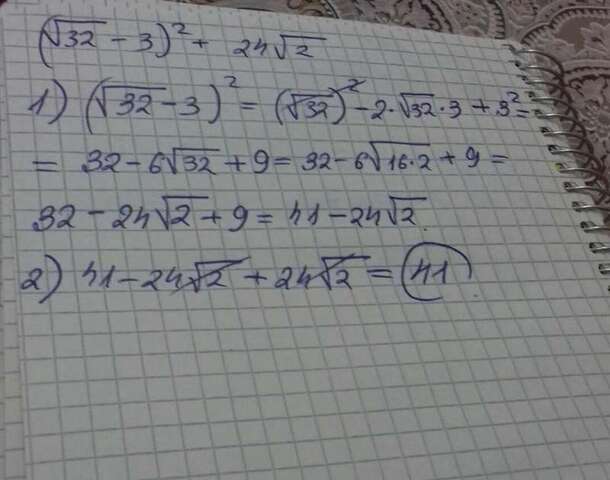 (√32 - 3)² + 24√2
1) (√32 - 3)² = (√32)² - 2·√32·3 + 3² =
= 32 - 6√32 + 9 = 32 - 6√16·2 + 9 =
32 - 24√2 + 9 = 41 - 24√2.
2) 41 - 24√2 + 24√2 = 41.